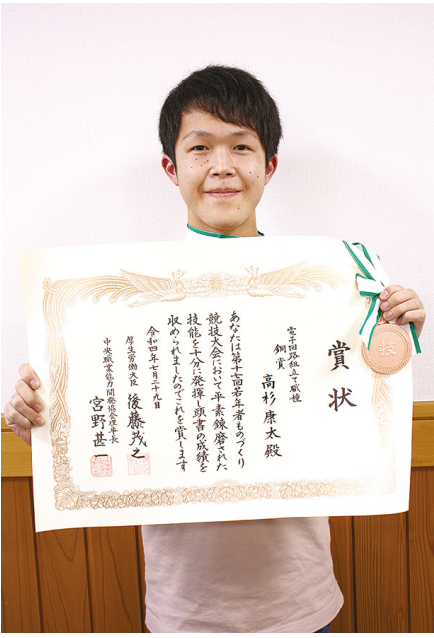 賞状
電子回路組立て職種
銅賞
高杉康太殿
あなたは第十七回若年者ものづくり
競技大会において平素錬磨された
技能を十分に発揮し頭書の成績を
収められましたのでこれを賞します
令和四年七月二十九日
厚生労働大臣 後藤茂之
中央職業能力開発協会理事長
宮野甚一
技